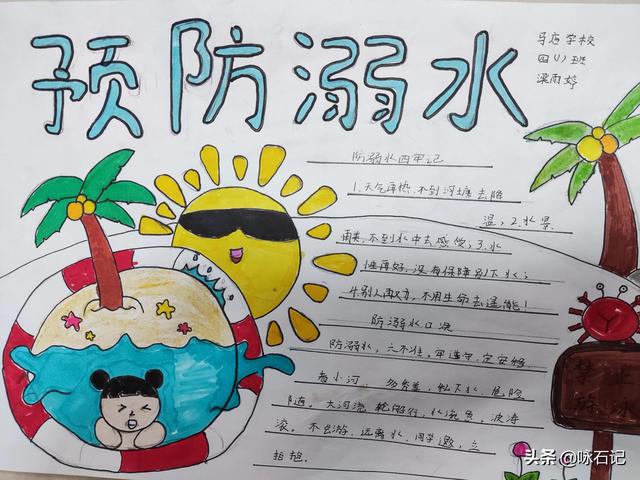 预防溺水
马店学校
四(1)班
梁雨婷
防溺水四牢记
1.天气再热,不到河塘去降
温;2.水景
再美,不到水中去感觉;3.水
性再好,没有保障别下水;
4.别人再欢,不用生命去逞能!
防溺水口诀
防溺水,六不准。牢遵守,定安
看小河 多危险
随。大河流 水流急,波涛
滚。不去游,远离水,同学邀,立
拒绝.
禁止
头条@咏石记